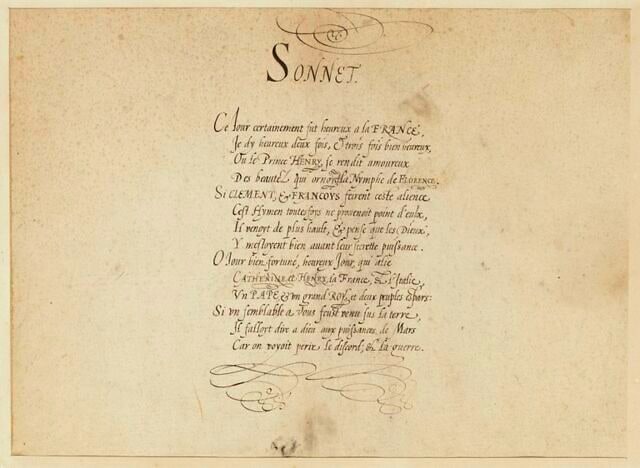 SONNET.
Ce Jour certainement fut heureux a la FRANCE,
Je dy heureux deux fois, & trois fois bien heureux,
Ou le Prince HENRY, se rendit amoureux
Des beautez qui ornoyent la Nymphe de FLORENCE.
Si CLEMENT, & FRANCOYS feirent ceste alience
Cest Hymen toutesfoys ne provenoit point d'eulx,
Il venoyt de plus hault, & pense que les Dieux,
Y mesloyent bien avant leur secrette puissance.
O Jour bien fortuné, heureux Jour, qui alie
CATHERINE et HENRY, la France, & l'Italie,
Vn PAPE & vn grand ROY, et deux peuples espars:
Si vn semblable a vous feust venu sus la terre,
Il falloit dire a dieu aux puissances de Mars
Car on voyoit perir le discord, & la guerre.